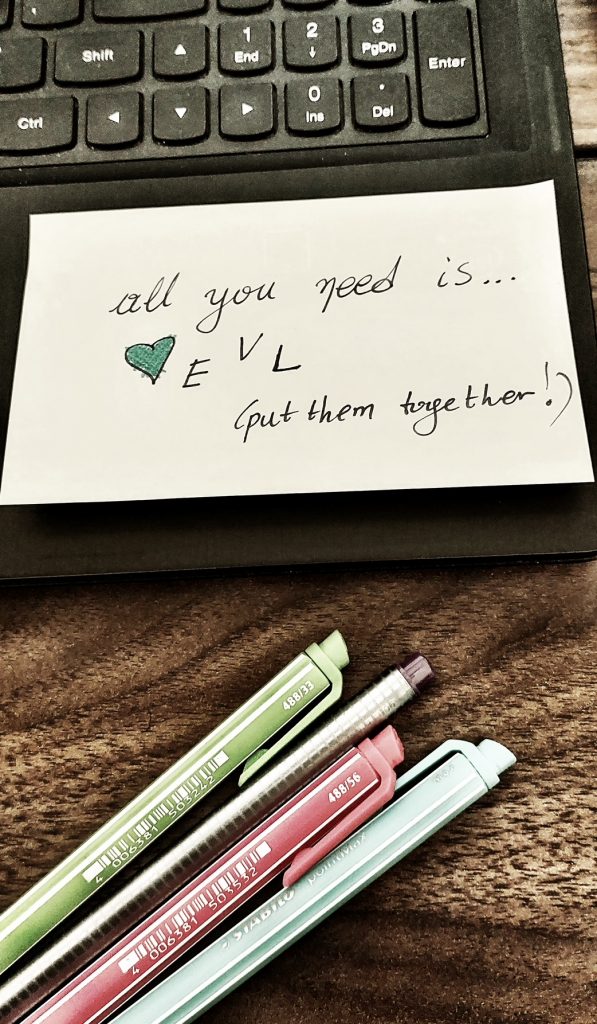 Shift 1 End 2 3 PgDn Enter
Ctrl 0 Ins . Del
all you need is...
E V L
(put them together!)
488/33
4 006381 503242
488/56
4 006381 503532
STABILO pointMax